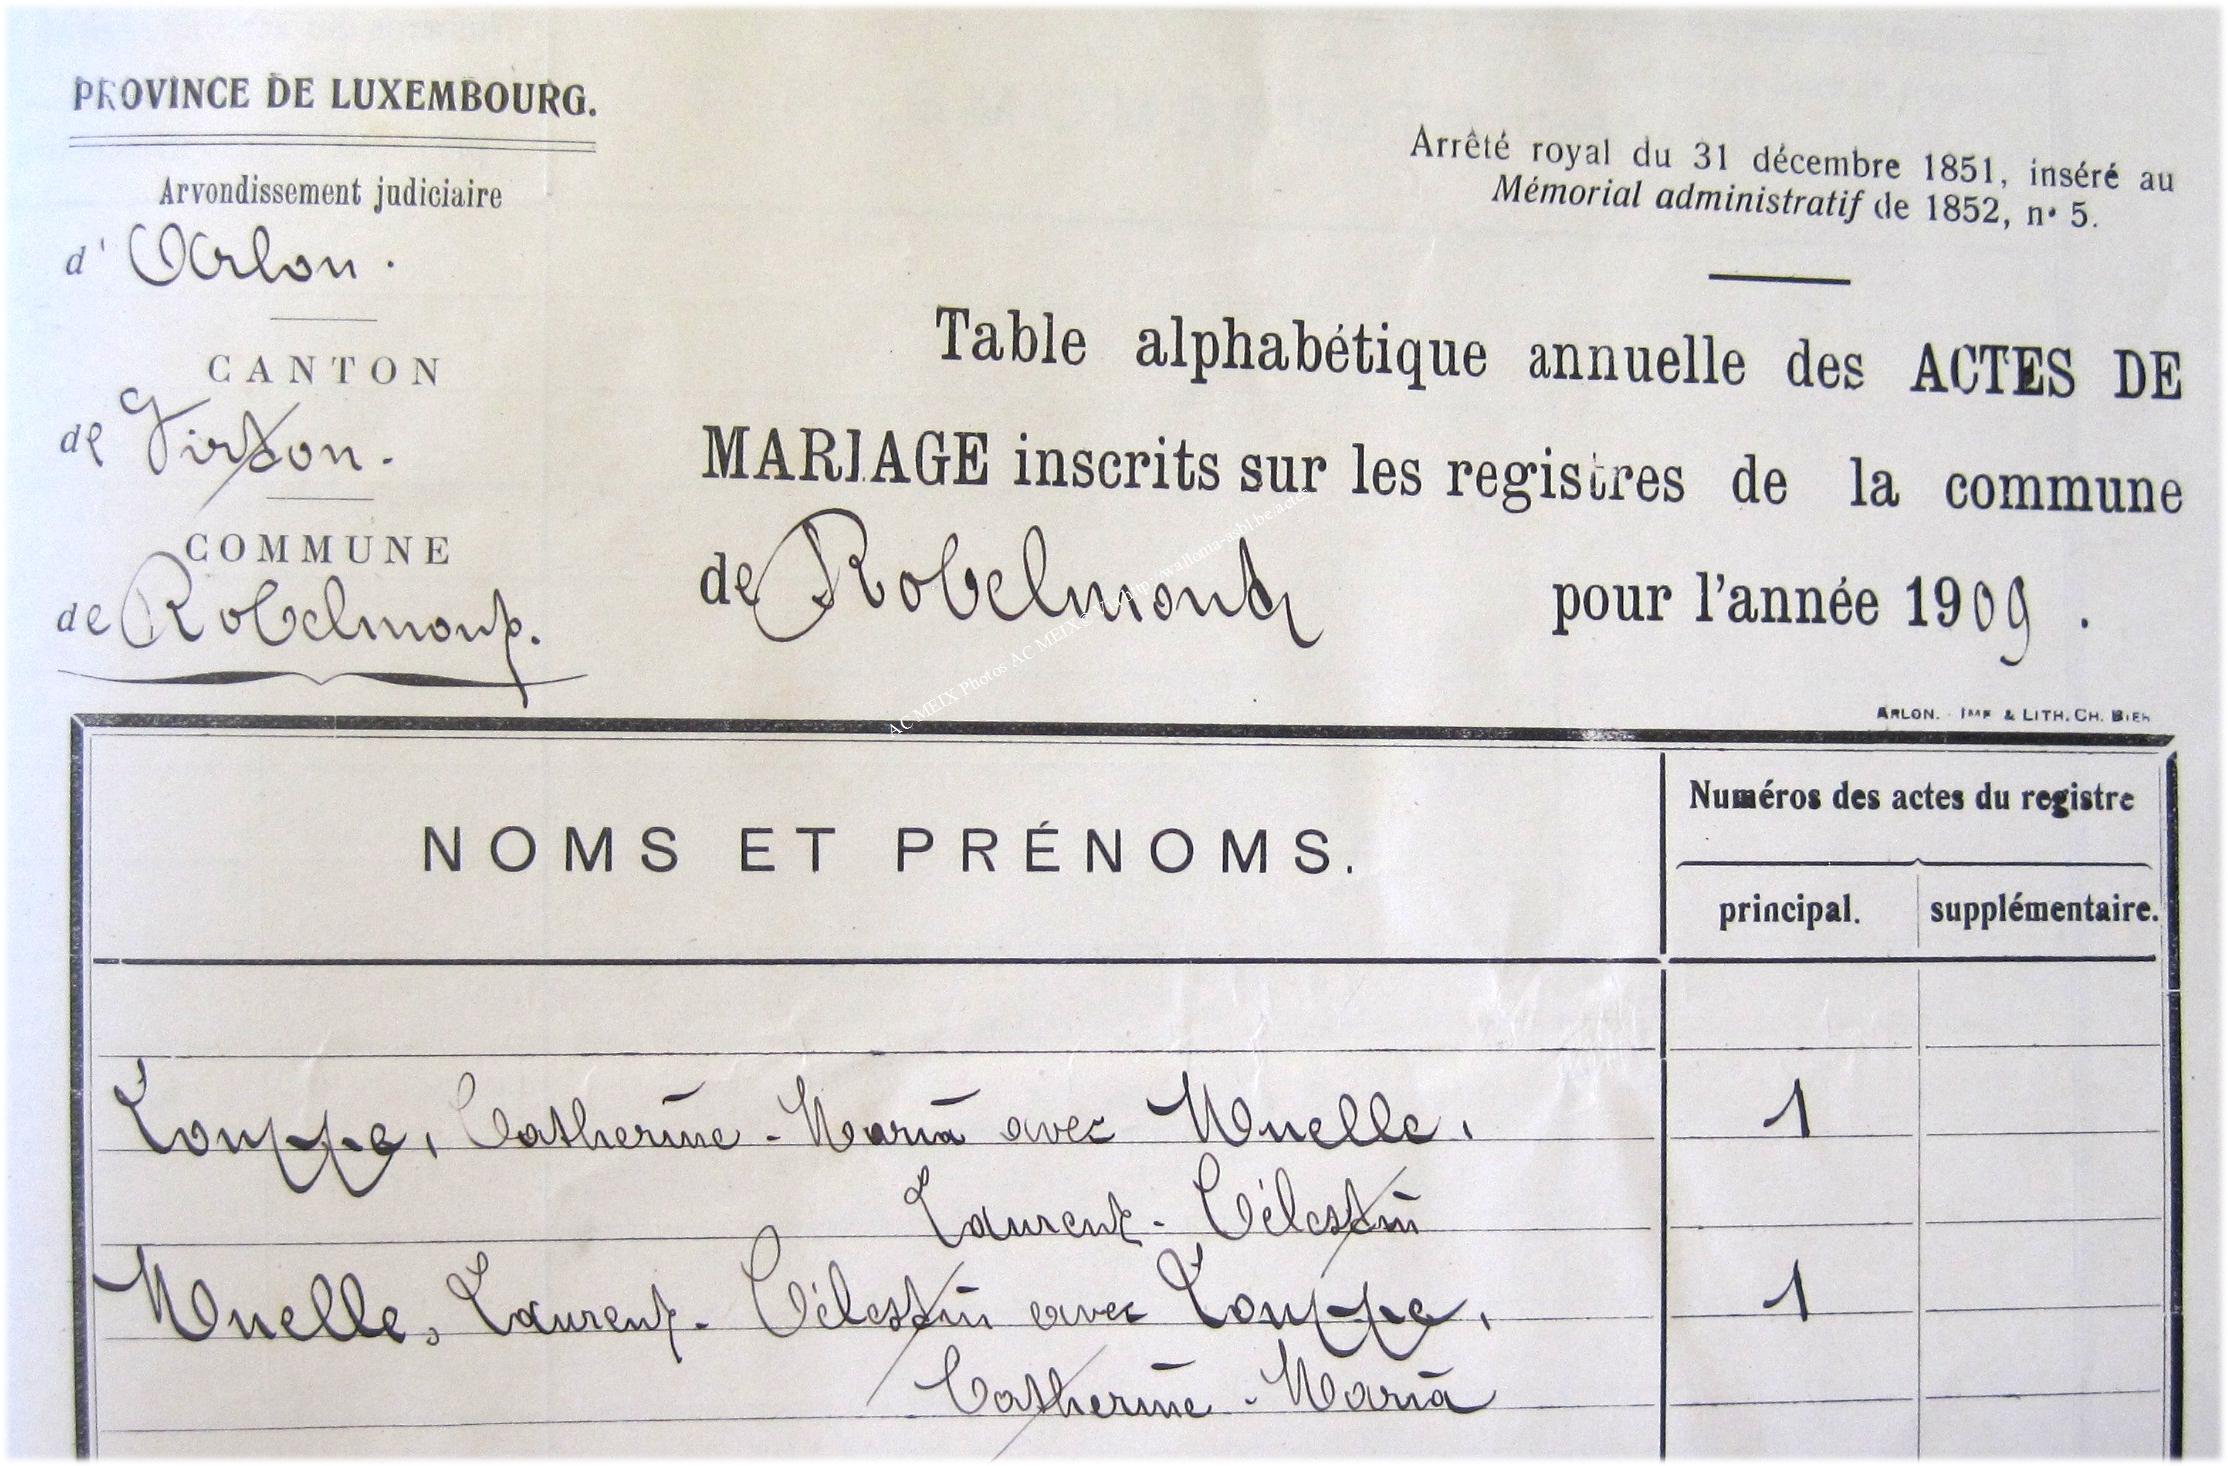 PROVINCE DE LUXEMBOURG.
Arrondissement judiciaire
d' Arlon.
CANTON
de Virton.
COMMUNE
de Robelmont.
Arrêté royal du 31 décembre 1851, inséré au
Mémorial administratif de 1852, n° 5.
Table alphabétique annuelle des ACTES DE
MARIAGE inscrits sur les registres de la commune
de Robelmont pour l'année 1909.
ARLON. - IMP & LITH. CH. 
NOMS ET PRÉNOMS.
Numéros des actes du registre
principal. supplémentaire.
Louppe, Catherine-Maria avec Muelle, 1
Laurent-Célestin
Muelle, Laurent-Célestin avec Louppe, 1
Catherine-Maria
AC MEIX Photos AC MEIX